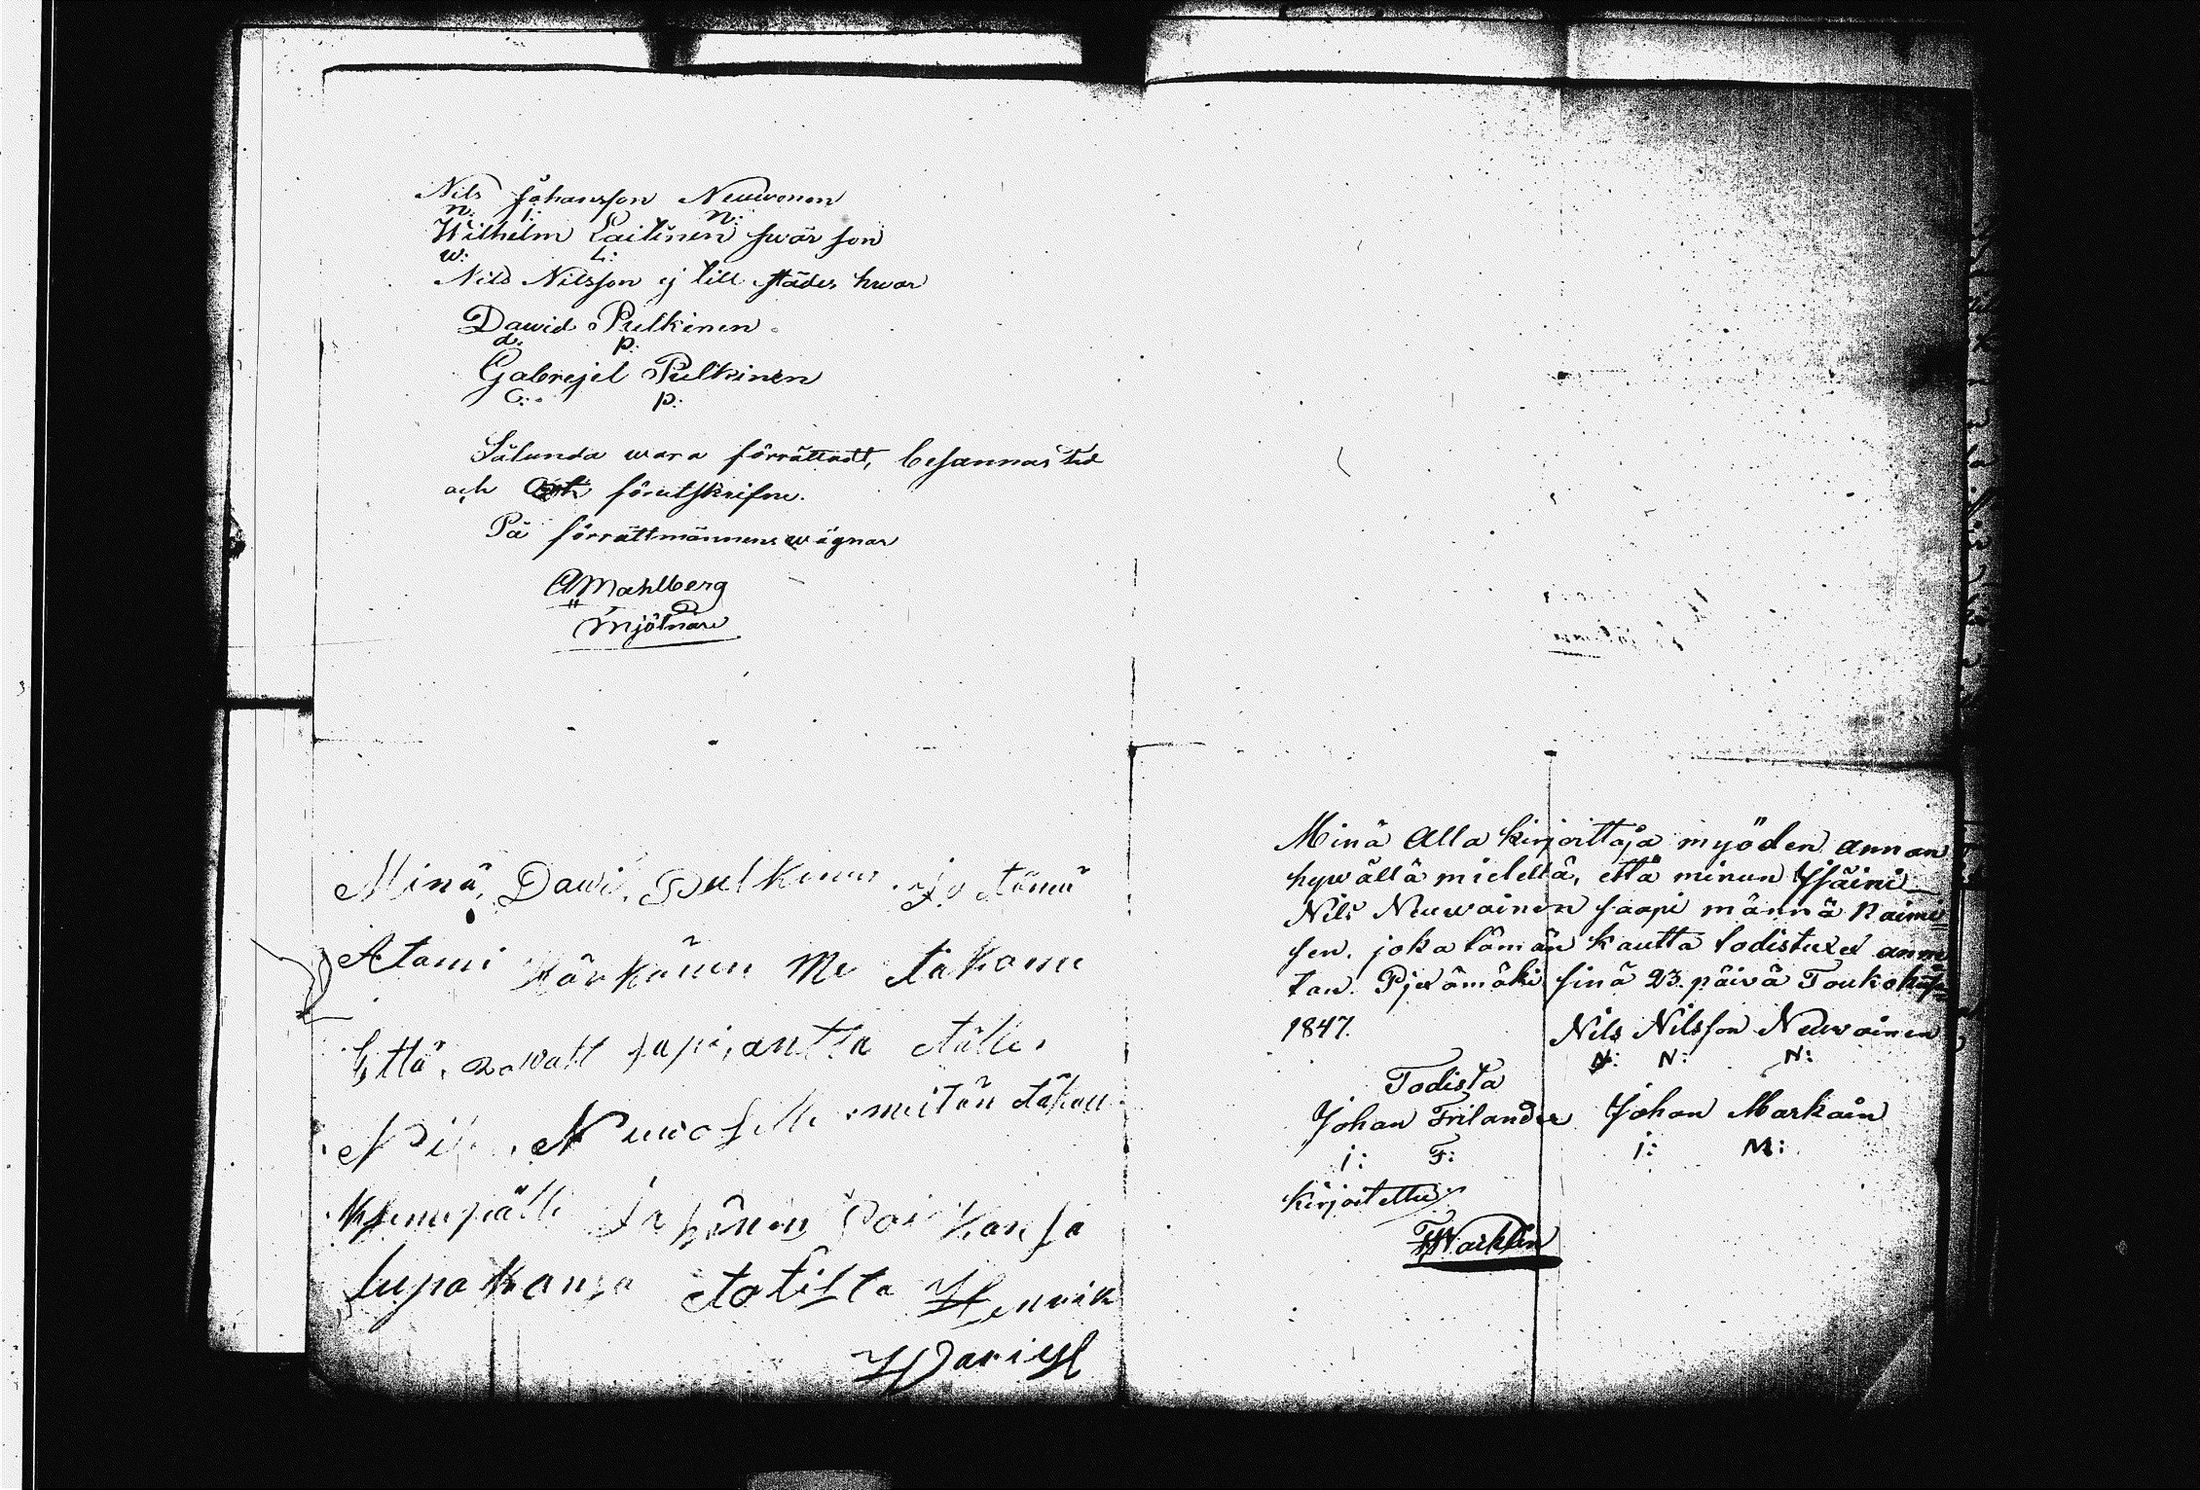 Nils Johansson Neuwonen
n: j: n:
Wilhelm Laitinen swär son
w: L:
Nils Nilsson ej till städes hwar
Dawid Pulkinen
d: p:
Gabrejel Pulkinen
G: p:
Sålunda wara förrättadt, besannas tid
och förutskrifne.
På förrättmännens wägnar
A Mahlberg
Mjölnare
Minä Dawi Pulkinen Ja tämä
Atami Kärkäinen Me takame
Että rowati sapi antta tälle
Nils Neuwoselle meitän takau
lupa kansa totista Henrik
Minä Alla kirjoittaja myöden annan
hywällä mielellä, että minun Isäini
Nils Neuwoinen saapi männä Naimi
sen, joka tämän kautta todistuxex anne
tan. Pjexämäki sinä 23. päivä Toukokuu
1847. Nils Nilsson Neuwoinen
N: N: N:
Todista
Johan Frilander Johan Markain
j: F: j: M:
kirjoitettu